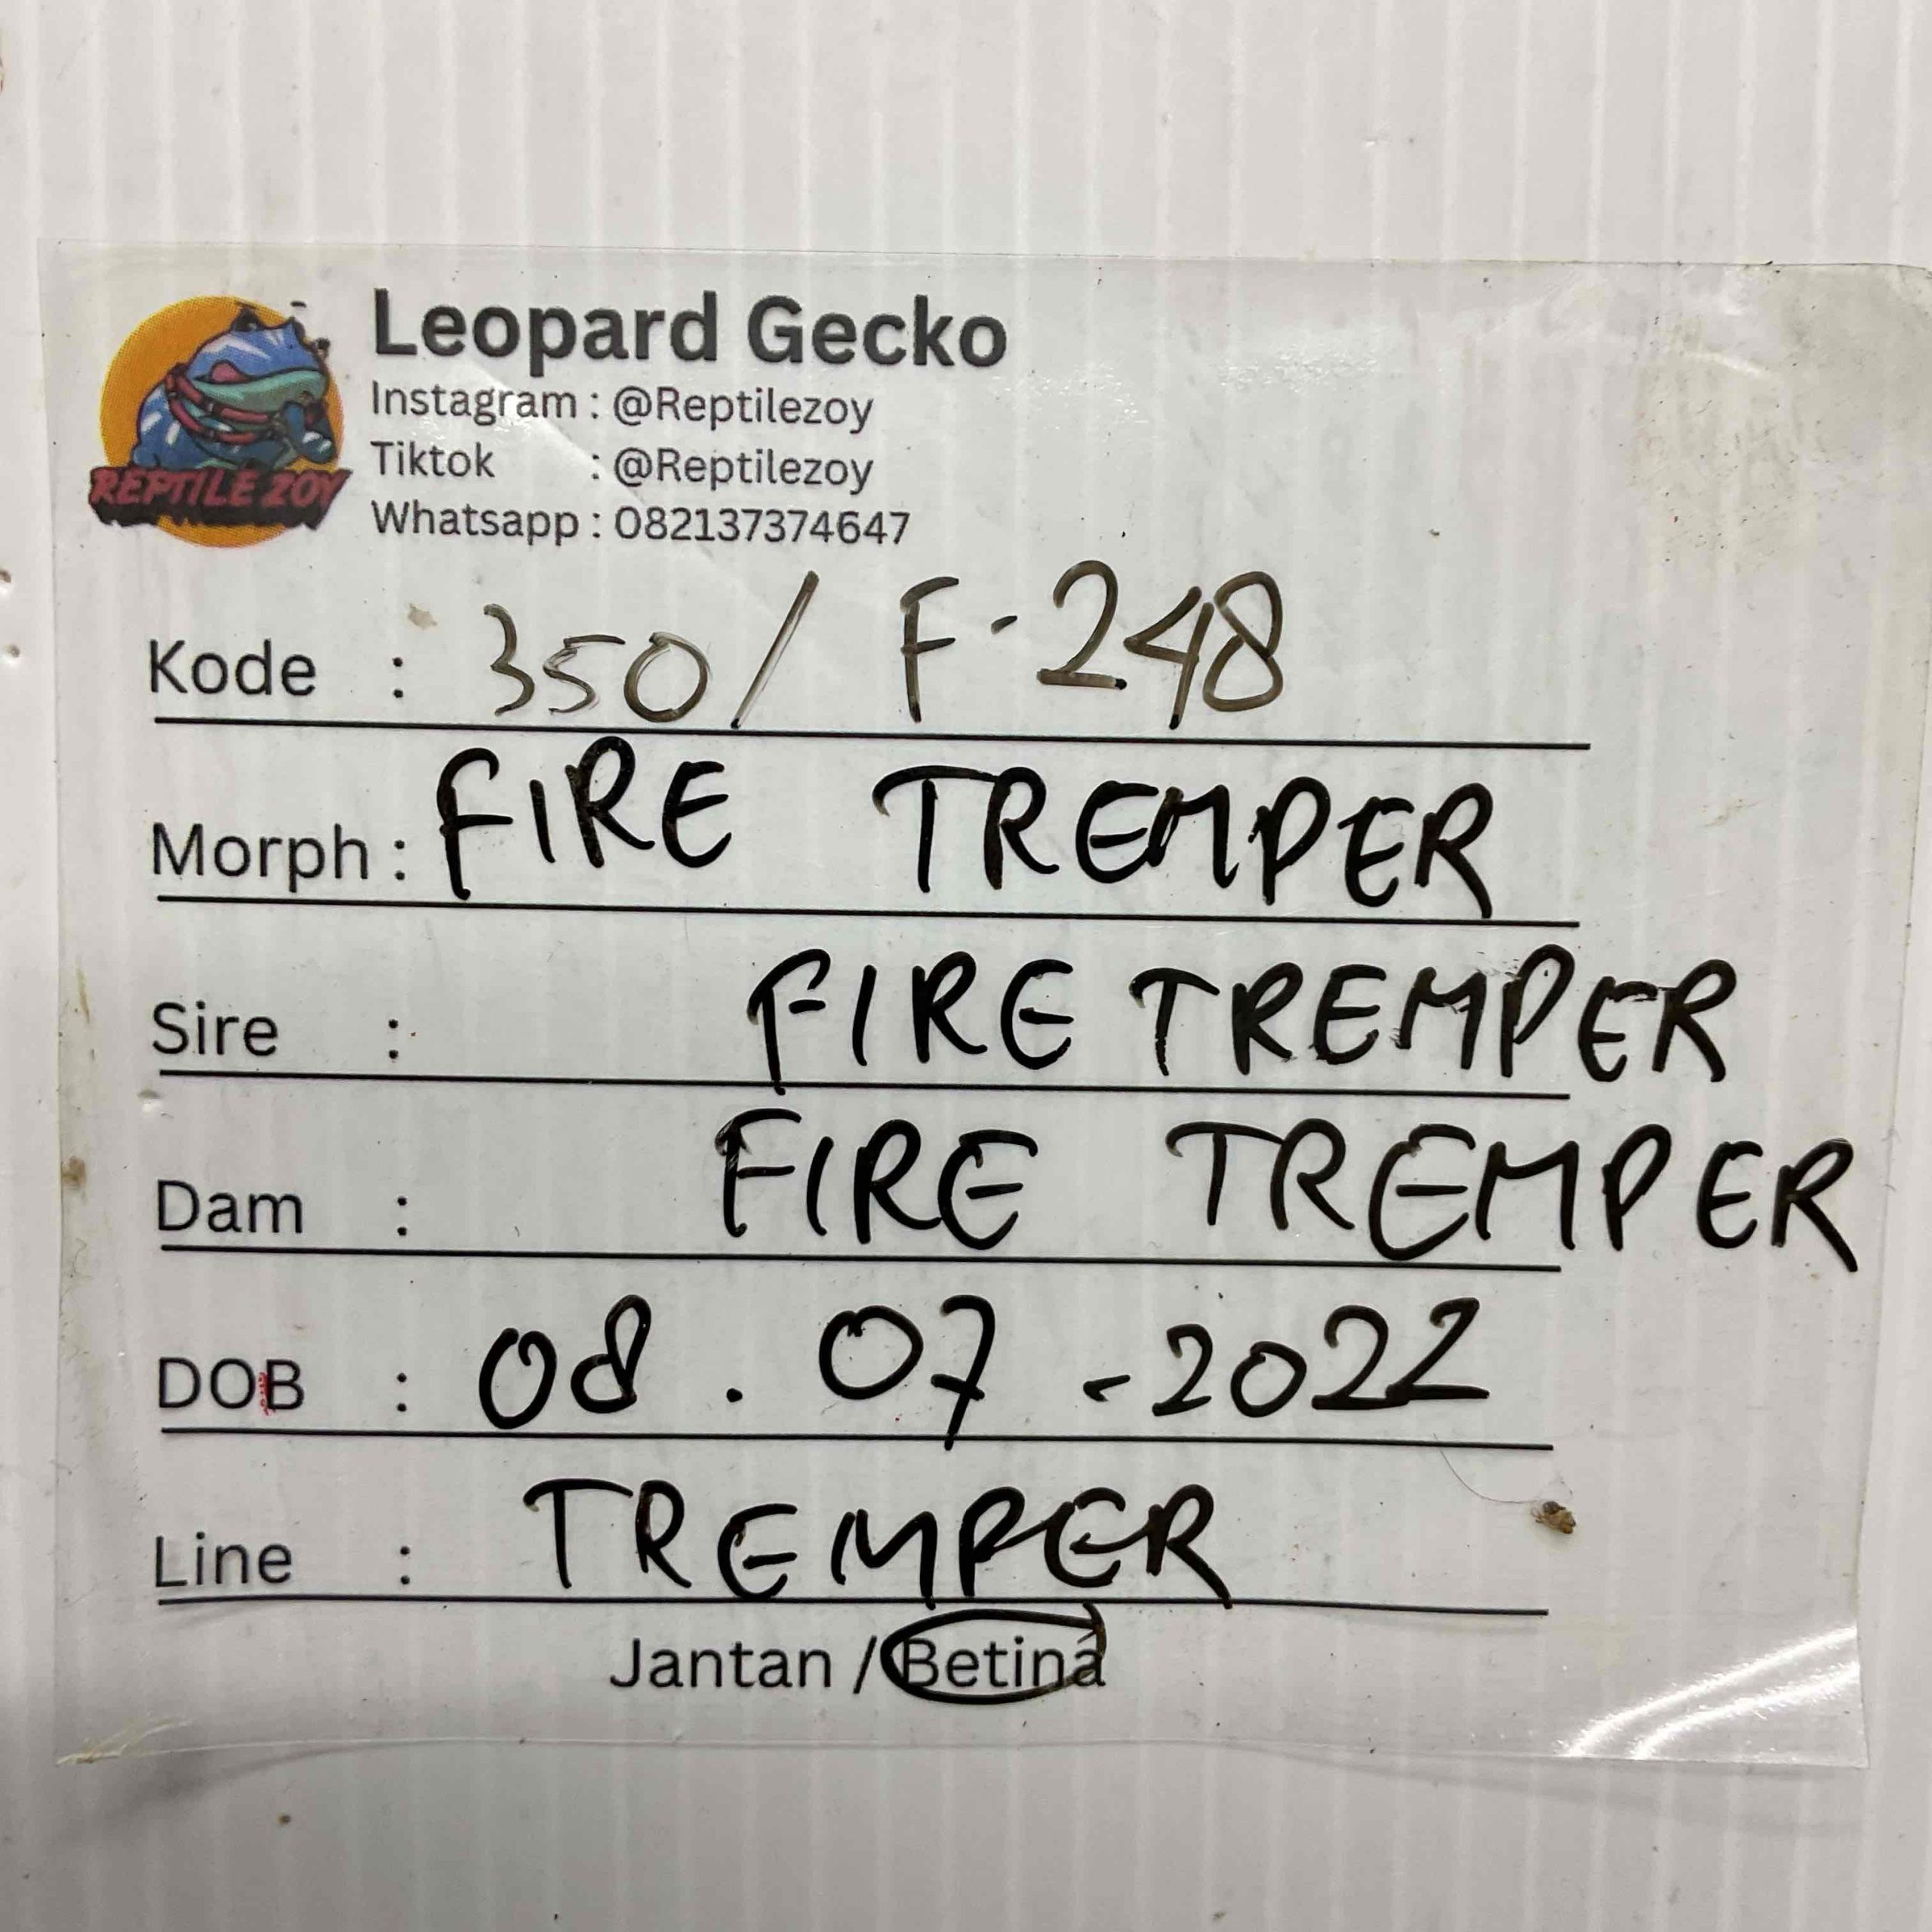 Leopard Gecko
Instagram : @Reptilezoy
Tiktok : @Reptilezoy
Whatsapp : 082137374647
REPTILE ZOY
Kode : 350 / F-248
Morph : FIRE TREMPER
Sire : FIRE TREMPER
Dam : FIRE TREMPER
DOB : 08 . 07 - 2022
Line : TREMPER
Jantan / Betina